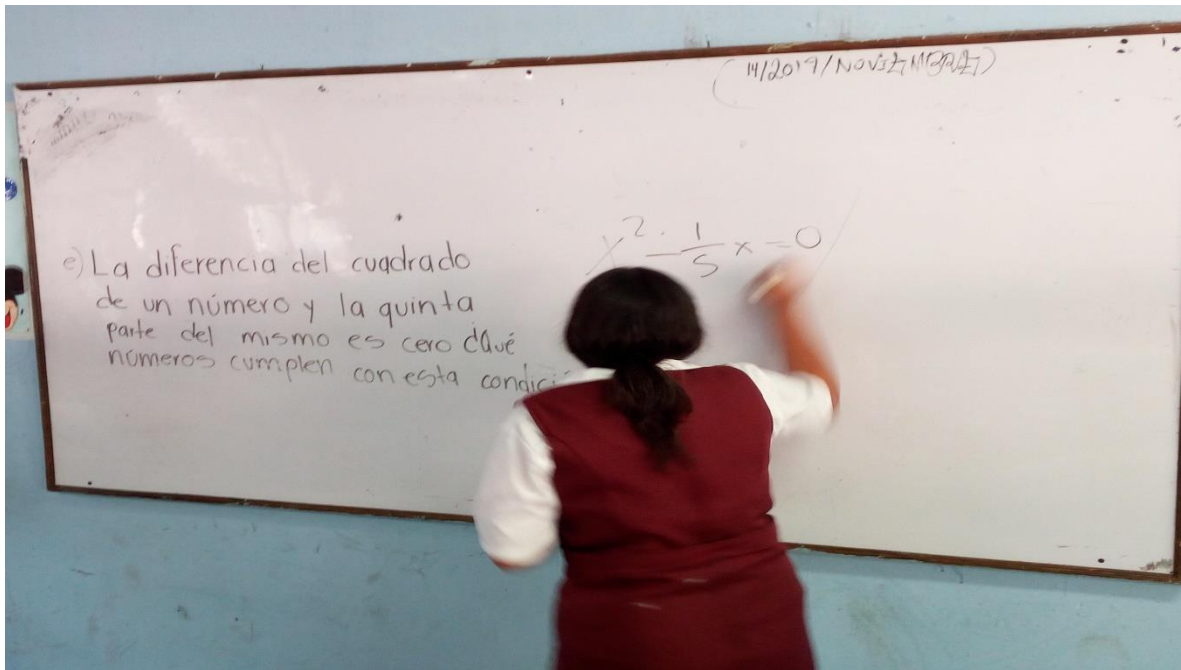 (14/2019/NOVIEMBRE)
e) La diferencia del cuadrado
de un número y la quinta
parte del mismo es cero ¿Qué
números cumplen con esta
x² - 1/5 x = 0